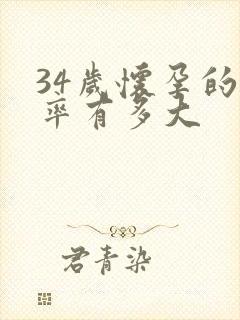 34歲懷孕的
率有多大
君青染